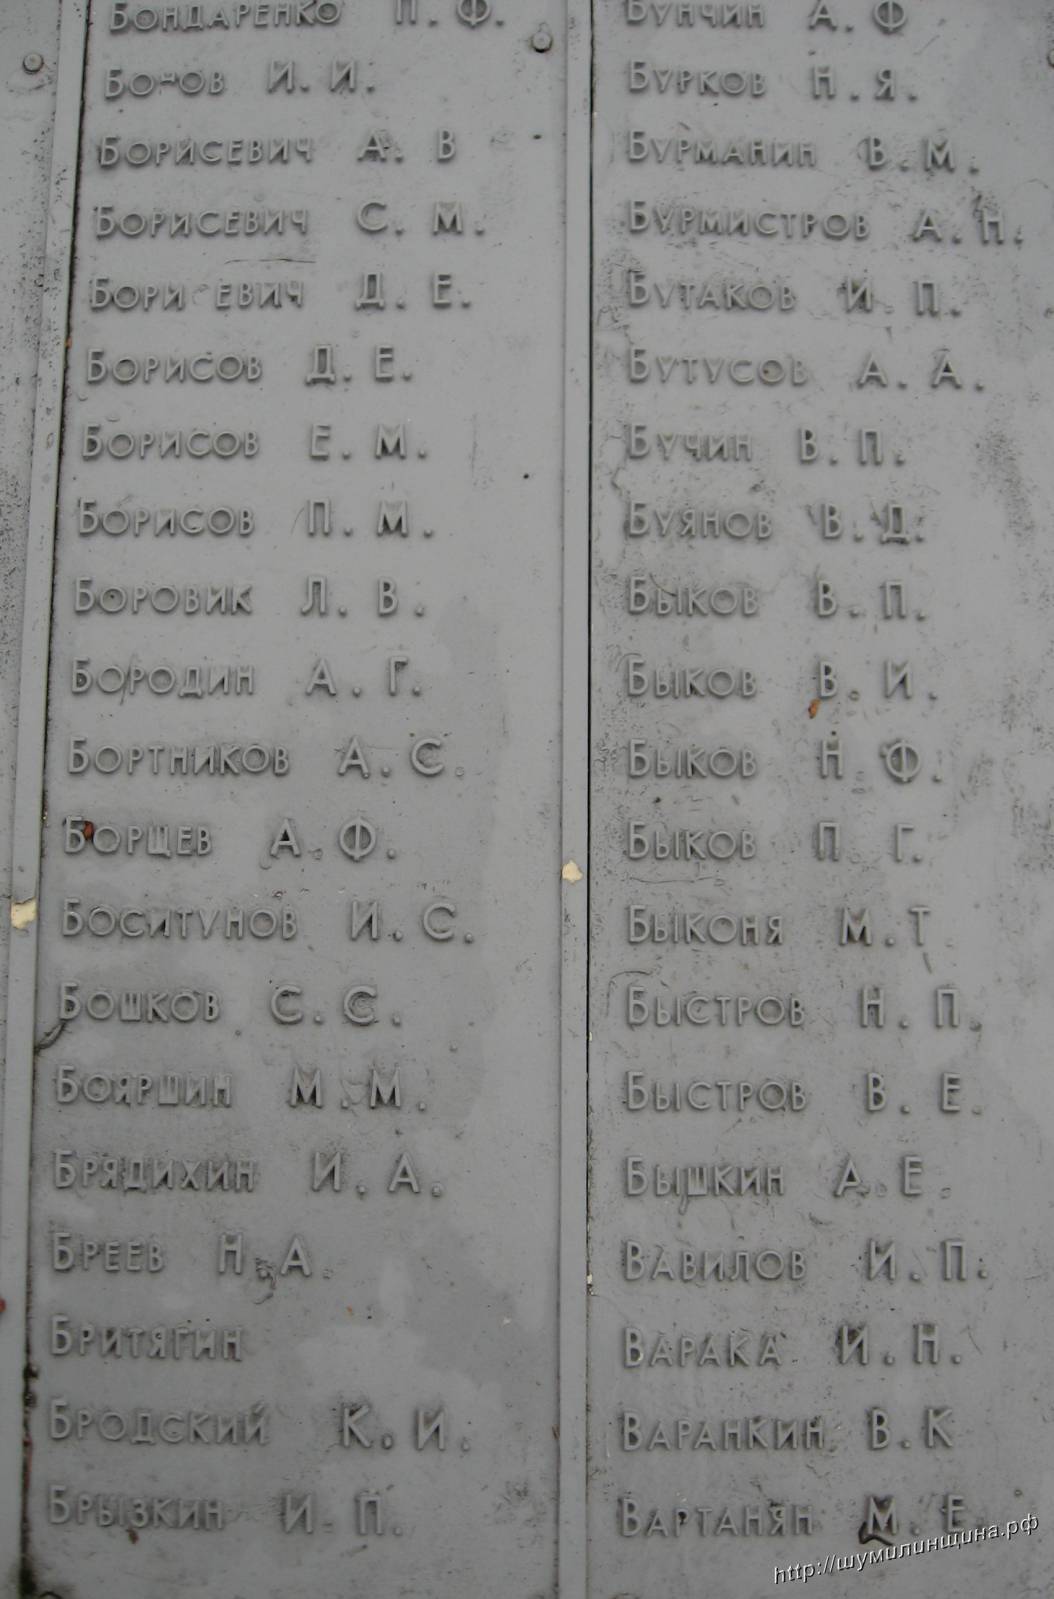 Бондаренко П. Ф.
И. И.
Борисевич А. В
Борисевич С. М.
Бори евич Д. Е.
Борисов Д. Е.
Борисов Е. М.
Борисов П. М.
Боровик Л. В.
Бородин А. Г.
Бортников А. С.
Борщев А. Ф.
Боситунов И. С.
Бошков С. С.
Бояршин М. М.
Брядихин И. А.
Бреев Н. А.
Бритягин
Бродский К. И.
Брызкин И П.
Бунчин А. Ф
Бурков Н. Я.
Бурманин В. М.
Бурмистров А. Н.
Бутаков И П.
Бутусов А. А.
Бучин В. П.
Буянов В. Д.
Быков В. П.
Быков В. И.
Быков Н. Ф.
Быков П Г.
Быконя М. Т
Быстров Н. П.
Быстров В. Е.
Бышкин А. Е.
Вавилов И. П.
Варака И. Н.
Варанкин В. К
Вартанян М. Е.
http://шумилинщина.рф